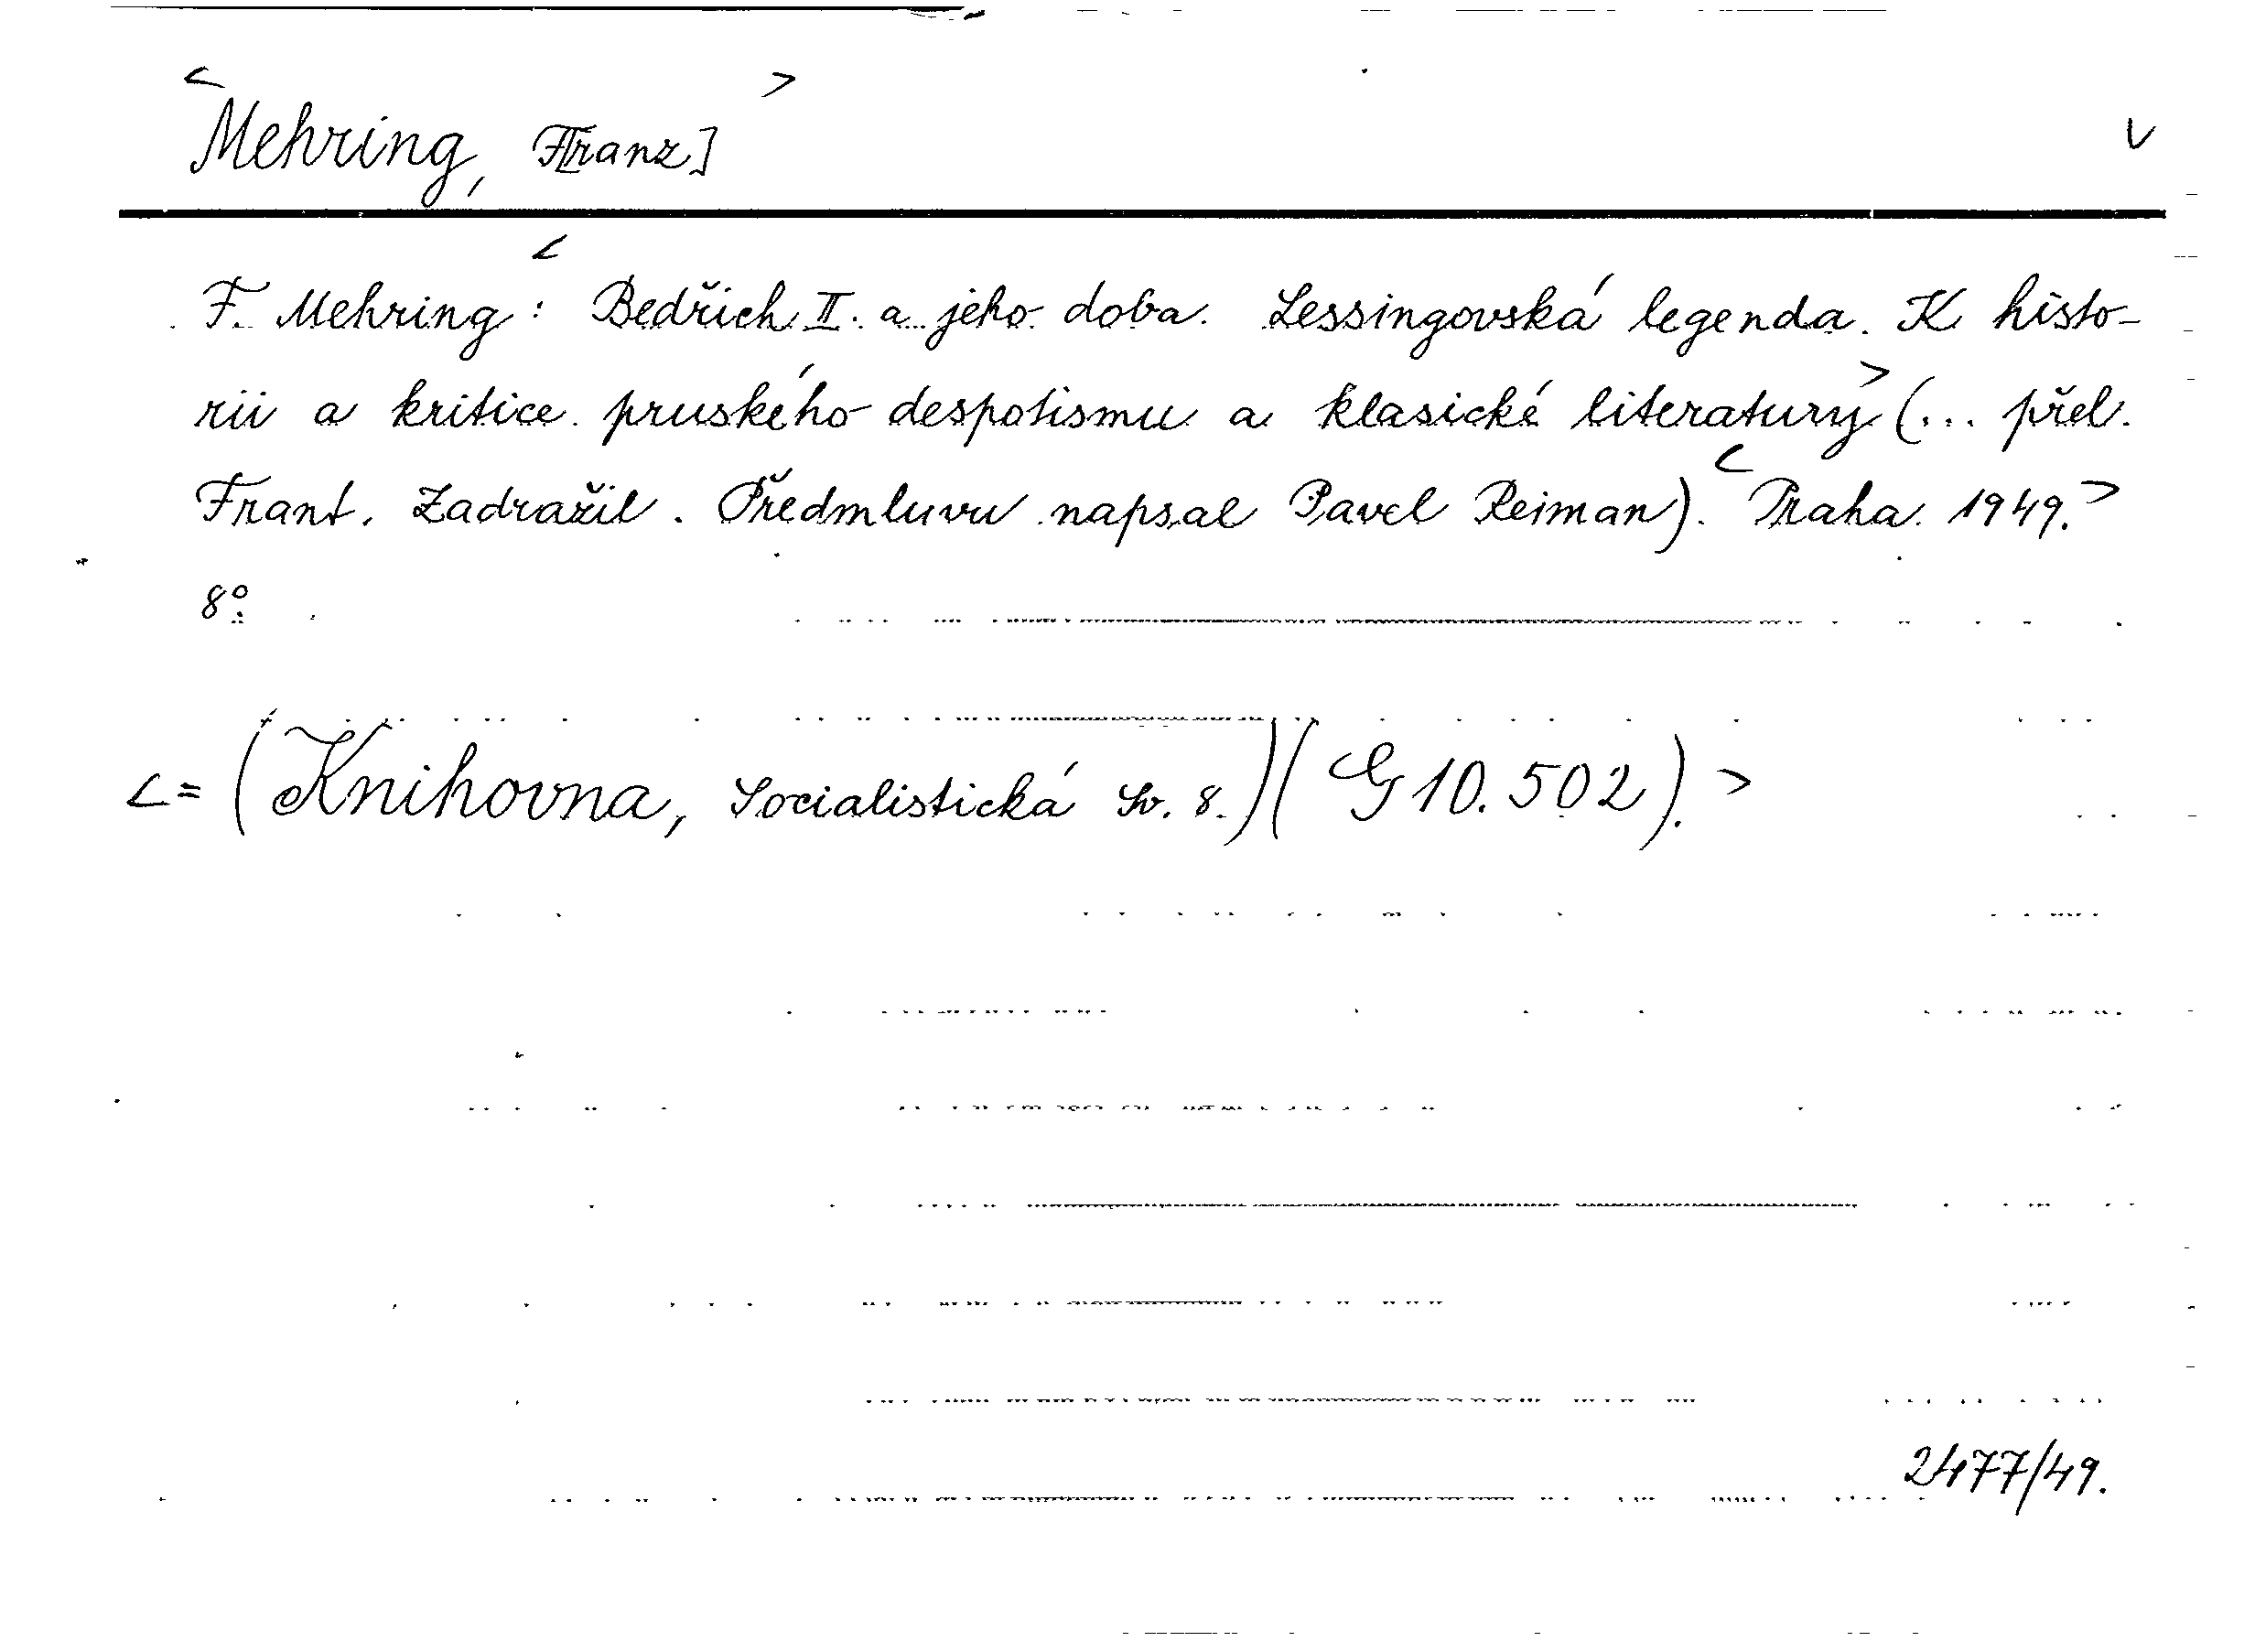 <Mehring, F[ranz]> v
F. Mehring: <Bedřich II. a jeho doba. Lessingovská legenda. K histo-
rii a kritice pruského despotismu a klasické literatury> (... přel.
Frant. Zadražil. Předmluvu napsal Pavel Reiman). <Praha 1949.>
8°.
<= (Knihovna, Socialistická Sv. 8.)(G 10.502).>
2477/49.